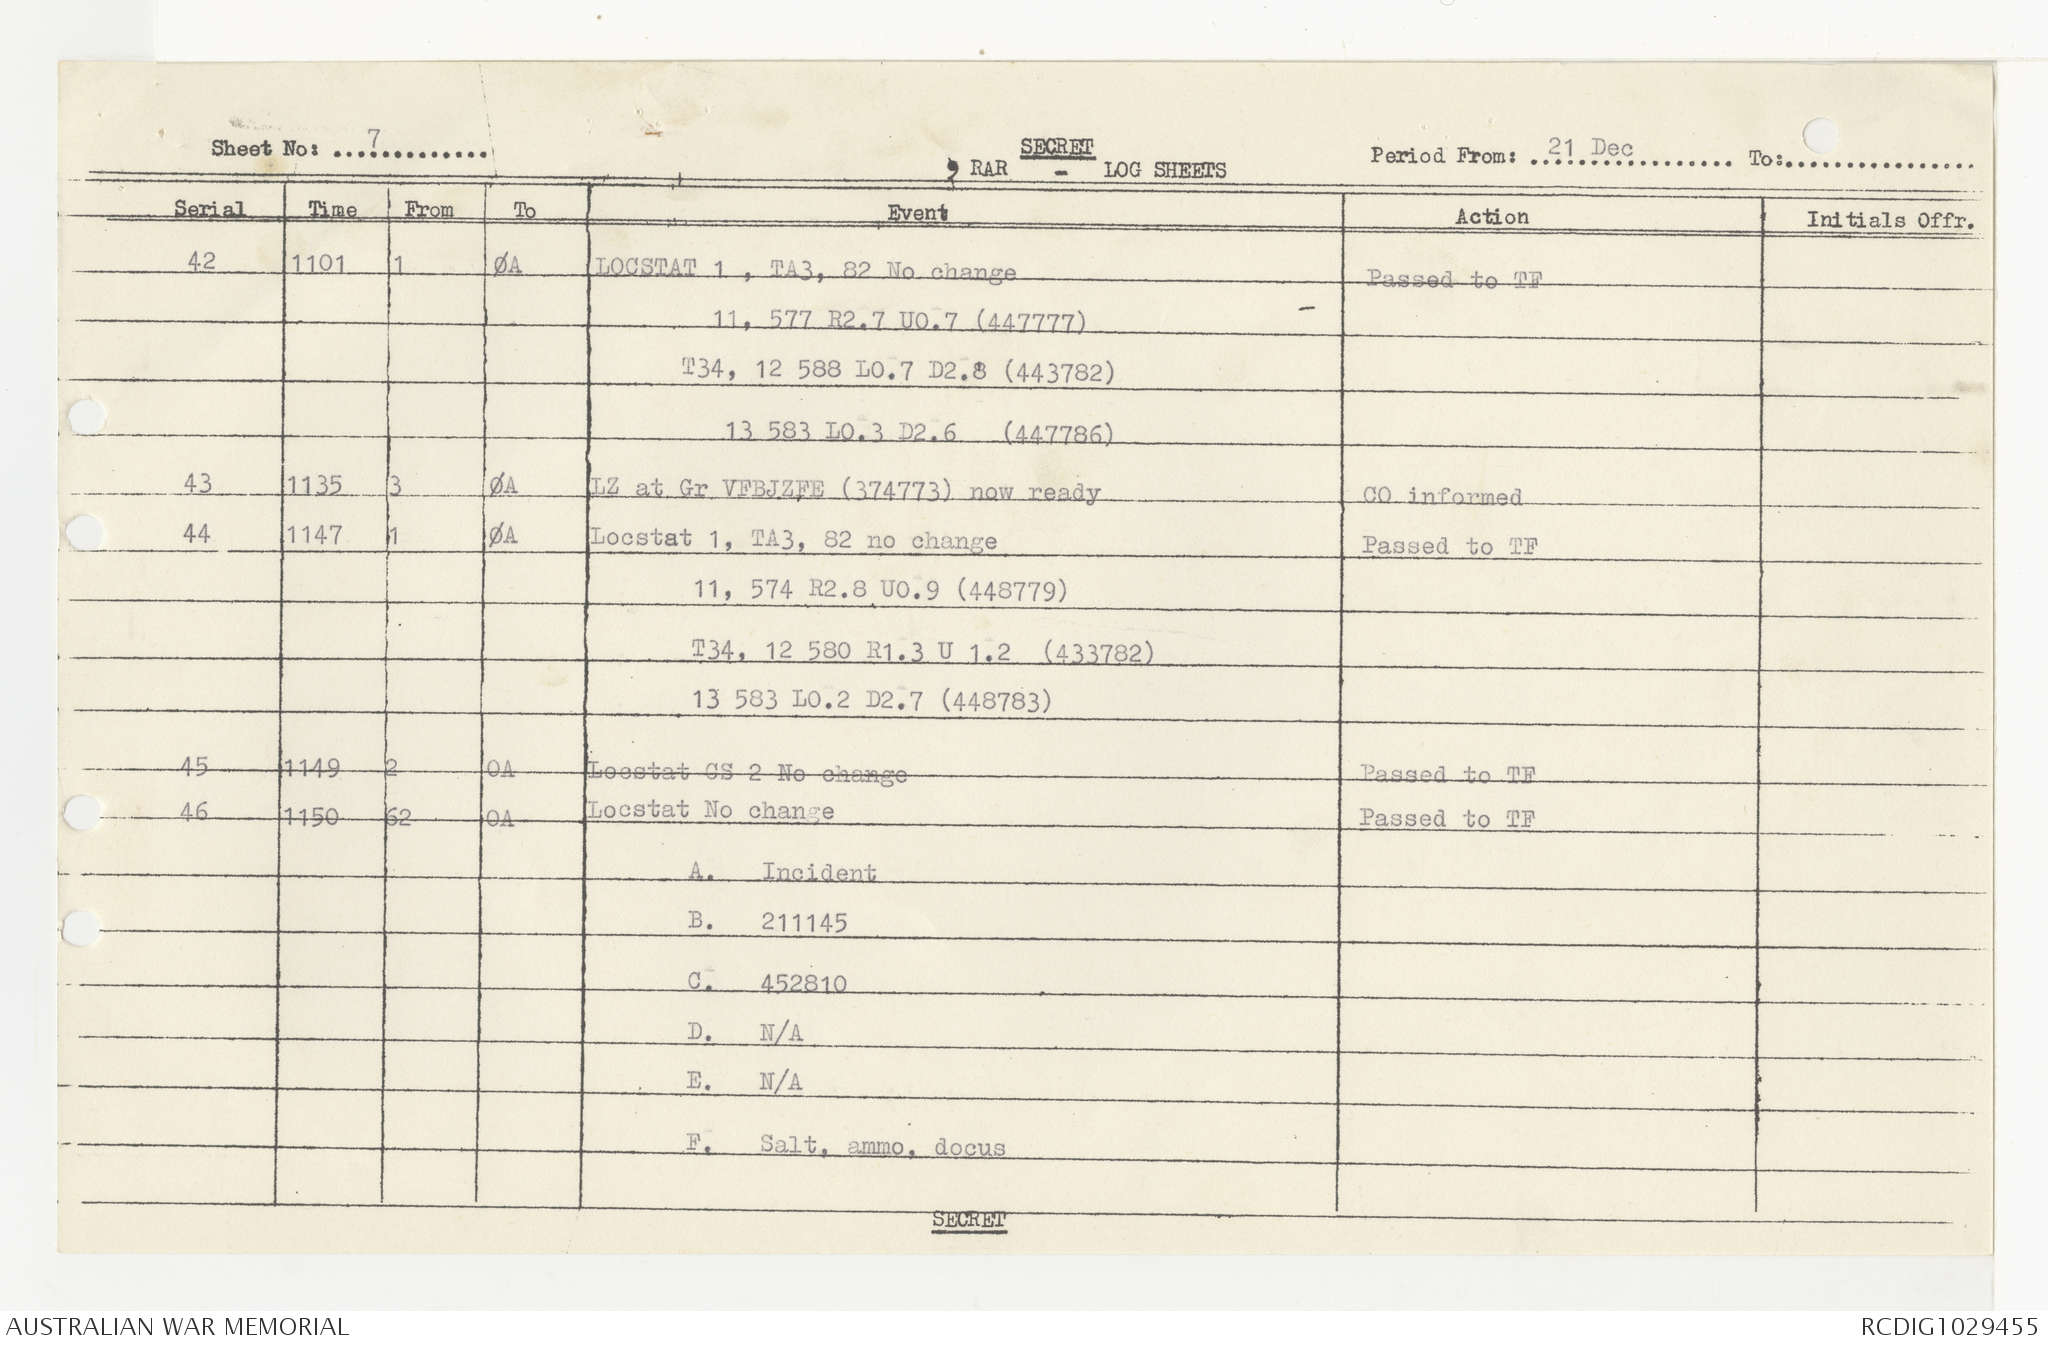 Sheet No: 7
SECRET
9 RAR - LOG SHEETS
Period From: 21 Dec To:
Serial Time From To Event Action Initials Offr.
42 1101 1 ØA LOCSTAT 1 , TA3, 82 No change Passed to TF
11, 577 R2.7 U0.7 (447777) -
T34, 12 588 L0.7 D2.8 (443782)
13 583 L0.3 D2.6 (447786)
43 1135 3 ØA LZ at Gr VFBJZFE (374773) now ready CO informed
44 1147 1 ØA Locstat 1, TA3, 82 no change Passed to TF
11, 574 R2.8 U0.9 (448779)
T34, 12 580 R1.3 U 1.2 (433782)
13 583 L0.2 D2.7 (448783)
45 1149 2 OA Locstat CS 2 No change Passed to TF
46 1150 62 OA Locstat No change Passed to TF
A. Incident
B. 211145
C. 452810
D. N/A
E. N/A
F. Salt, ammo, docus
SECRET
AUSTRALIAN WAR MEMORIAL RCDIG1029455